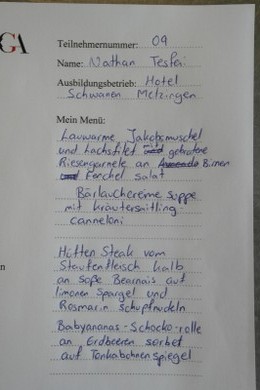 GA
Teilnehmernummer: 09
Name: Nathan Tesfai
Ausbildungsbetrieb: Hotel
Schwanen Metzingen
Mein Menü:
Lauwarme Jakobsmuschel
und Lachsfilet gebratene
Riesengarnele an Birnen
Fenchel salat
Bärlauchcreme suppe
mit kräutersaitling
canneloni
Hüften Steak vom
Staufenfleisch kalb
an soße Bearnais auf
limonen Spargel und
Rosmarin schupfnudeln
Babyananas-Schocko-rolle
an Erdbeeren sorbet
auf Tonkabohnenspiegel